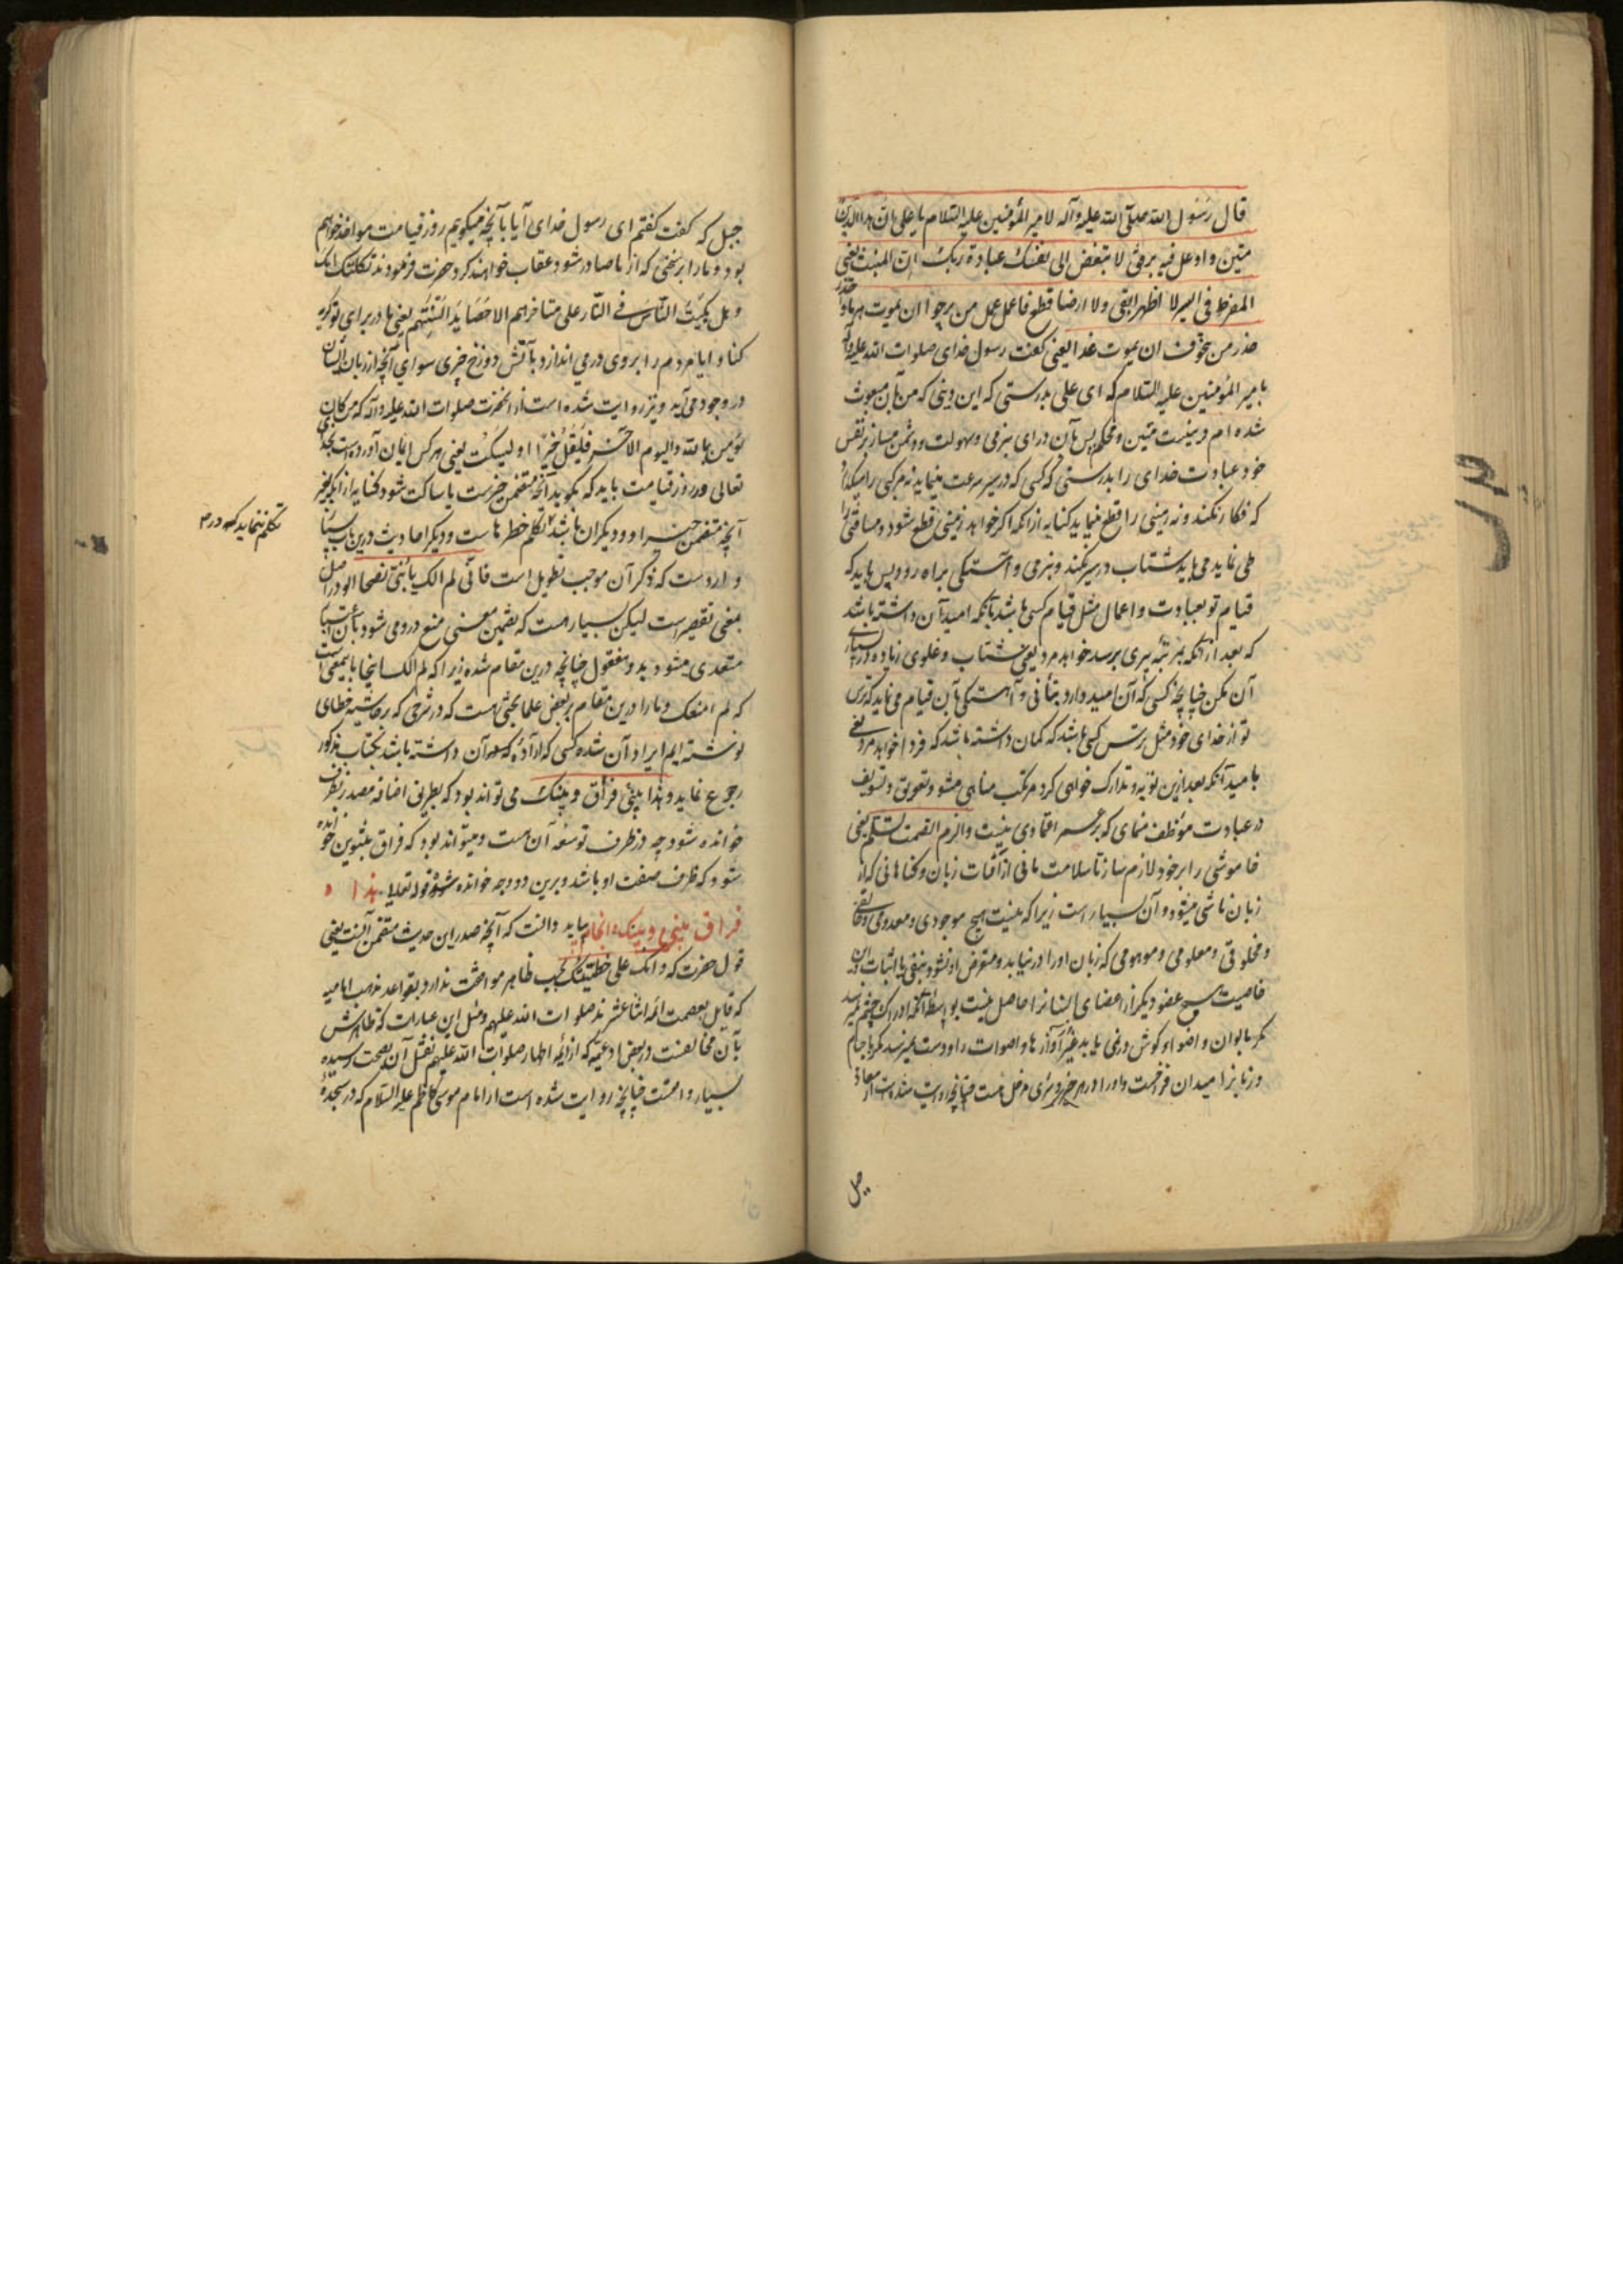 قال رسول الله صلی الله علیه وآله لامیر المؤمنین علیه السلام یا علی ان هذا الدین
متین و اوغل فیه برفق لا تبغض الی نفسک عبادة ربک ان المنبت یعنی
المفرط فی السیر لا اظهرا بقی ولا ارضا قطع فاعمل عمل من یرجو ان یموت هرما و احذر
حذر من یتخوف ان یموت غدا یعنی گفت رسول خدای صلوات الله علیه وآله
بامیر المؤمنین علیه السلام که ای علی بدرستی که این دینی که من بآن مبعوث
شده ام دینیست متین و محکم پس بآن درای بنرمی و سهولت و دشمن مساز بر نفس
خود عبادت خدای را بدرستی که کسی که در سیر سرعت مینماید نه مرکبی را میگذارد
که فکار نکند و نه زمینی را قطع مینماید کنایه از آنکه اگر خواهد زمینی قطع شود و مسافتی را
طی نماید می باید شتاب در سیر نکند و بنرمی و آهستگی براه رود پس باید که
قیام تو بعبادت و اعمال مثل قیام کسی باشد بآنکه امید آن داشته باشد
که بعد از آنکه بمرتبه پیری برسد خواهد مرد یعنی شتاب و غلوی زیاده در
آن مکن چنانچه کسی که آن امید دارد بتأنی و آهستگی بآن قیام می نماید که ترس
تو از خدای خود مثل ترس کسی باشد که گمان داشته باشد که فردا خواهد مرد یعنی
بامید آنکه بعد ازین توبه و تدارک خواهی کرد مرتکب مناهی مشو و تعویق و تسویف
در عبادت مؤظف منمای که بر عمر اعتمادی نیست و الزم الصمت تسلم یعنی
خاموشی را بر خود لازم ساز تا سلامت مانی از آفات زبان و گناهانی که از
زبان ناشی میشود و آن بسیار است زیرا که نیست هیچ موجودی و معدومی و خالقی
و مخلوقی و معلومی و موهومی که زبان او را در نیابد و متعرض او نشود بنفی یا اثبات و این
خاصیت هیچ عضو دیگر از اعضای انسانرا حاصل نیست بواسطه آنکه ادراک چشم نمیرسد
مگر بالوان و اضواء و گوش در نمی یابد غیر آوازها و اصوات را و دست نمیرسد مگر باجسام
و زبانرا میدان فراخست و او را در هر خیر و شری مدخل هست چنانچه روایت شده است از معاذ
جبل که گفت گفتم ای رسول خدای آیا بآنچه میگوییم روز قیامت مواخذ خواهیم
بود و ما را بر سخنی که از ما صادر شود عقاب خواهند کرد حضرت فرمودند ثکلتک امک
و هل یکب الناس فی النار علی مناخرهم الا حصاید السنتهم یعنی مادر برای تو گریه
کناد و ایا مردم را بر روی در می اندازد بآتش دوزخ چیزی سوای آنچه از زبان ایشان
در وجود می آید و نیز روایت شده است از آنحضرت صلوات الله علیه وآله که من کان
یؤمن بالله و الیوم الاخر فلیقل خیرا او لیسکت یعنی هر کس ایمان آورده است بخدای
تعالی و روز قیامت باید که بگوید آنچه متضمن خیرست یا ساکت شود کنایه از آنکه بغیر
آنچه متضمن خیر او و دیگران باشد تکلم خطرهاست و دیگر احادیث درین باب بسیار
تکلم ننماید که در
وارد است که ذکر آن موجب تطویل است فانی لم الک یا بنی نصحا الو در اصل
بمعنی تقصیر است لیکن بسیار هست که تضمین معنی منع در و می شود و بآن اعتبار
متعدی میشود بدو مفعول چنانچه درین مقام شده زیرا که لم الک اینجا باینمعنی است
که لم امنعک و ما را درین مقام بر بعض علما بحثی هست که در شرحی که بر حاشیه خطای
نوشته ایم ایراد آن شده کسی که اراده آن داشته باشد بکتاب مذکور
رجوع نماید و هذا بینی فراق و بینک می تواند بود که بطریق اضافه مصدر بظرف
خوانده شود چه در ظرف توسعه آن هست و میتواند بود که فراق بتنوین خوانده
شود که ظرف صفت او باشد و برین دو وجه خوانده شده قوله تعالی هذا
فراق بینی و بینک انجام بباید دانست که آنچه صدر این حدیث متضمن آنست یعنی
قول حضرت که و ابک علی خطیئتک بحسب ظاهر موافقت ندارد بقواعد مذهب امامیه
که قایل بعصمت ائمه اثنا عشرند صلوات الله علیهم و مثل این عبارات که ظاهرش
بآن مخالفست در بعض ادعیه که از ایمه اطهار صلوات الله علیهم نقل آن بصحت رسیده
بسیار واقعست چنانچه روایت شده است از امام موسی کاظم علیه السلام که در سجده